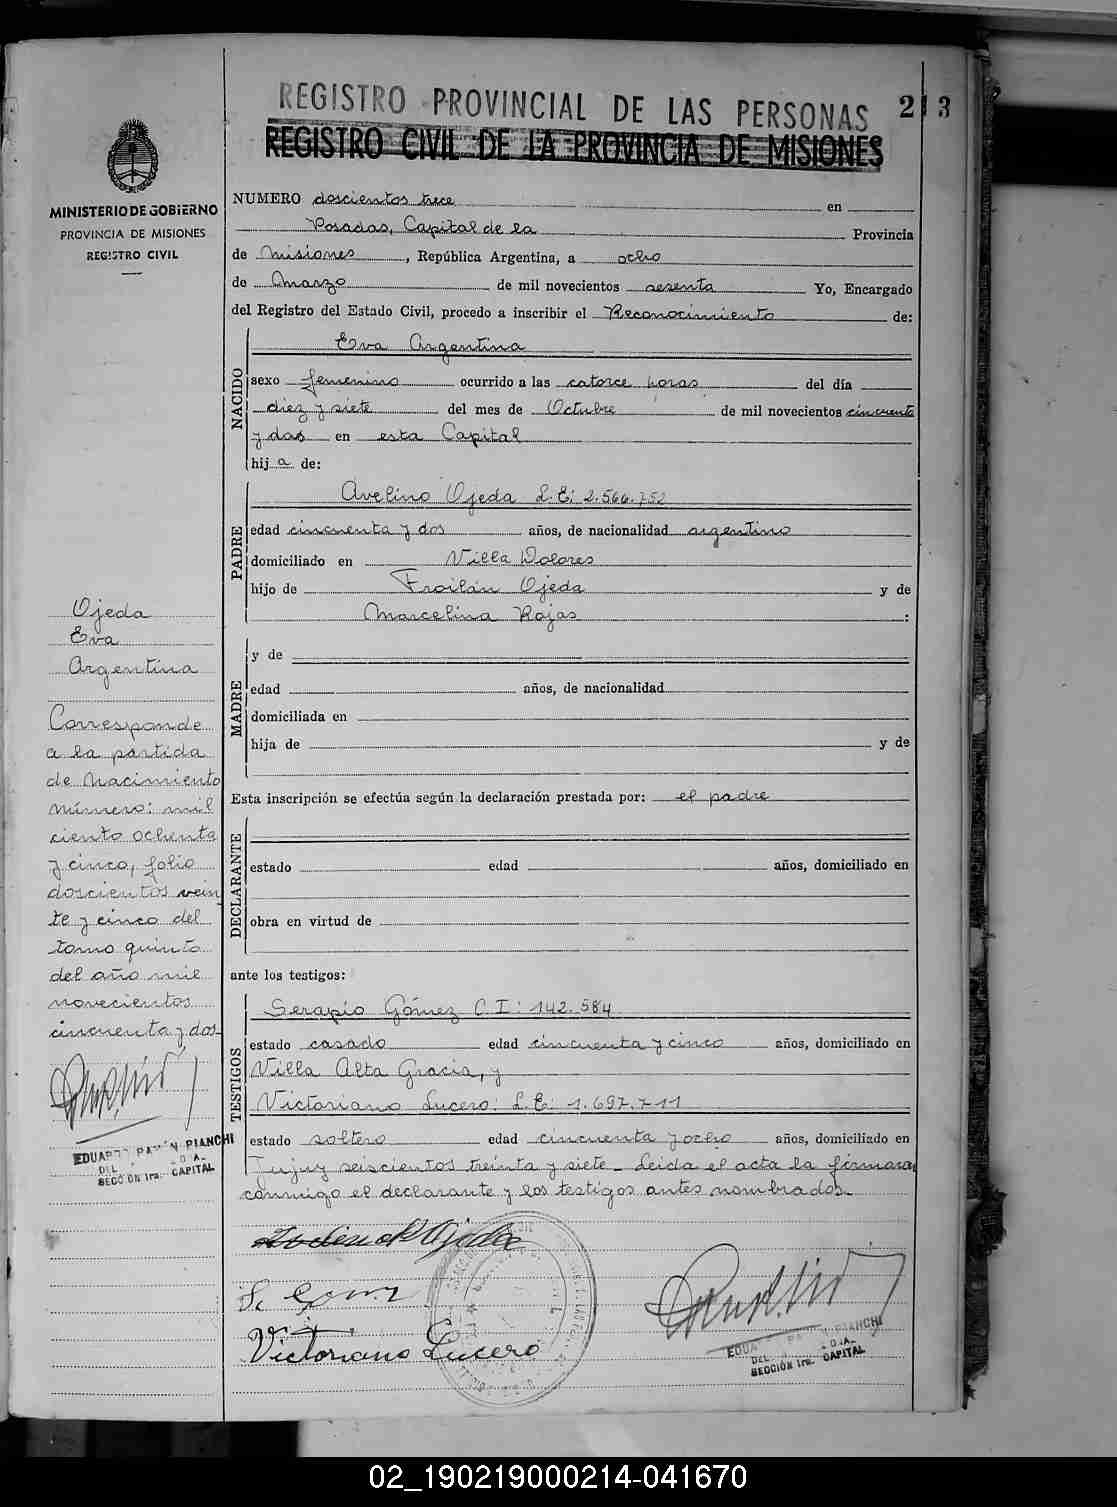 REGISTRO PROVINCIAL DE LAS PERSONAS
213
REGISTRO CIVIL DE LA PROVINCIA DE MISIONES
MINISTERIO DE GOBIERNO
PROVINCIA DE MISIONES
REGISTRO CIVIL
NUMERO doscientos trece en
Posadas, Capital de la Provincia
de Misiones, República Argentina, a ocho
de Marzo de mil novecientos sesenta Yo, Encargado
del Registro del Estado Civil, procedo a inscribir el Reconocimiento de:
NACIDO
Eva Argentina
sexo femenino ocurrido a las catorce horas del día
diez y siete del mes de Octubre de mil novecientos cincuenta
y dos en esta Capital
hija de:
PADRE
Avelino Ojeda L.E: 2.566.752
edad cincuenta y dos años, de nacionalidad argentino
domiciliado en Villa Dolores
hijo de Froilán Ojeda y de
Marcelina Rojas :
MADRE
y de
edad años, de nacionalidad
domiciliada en
hija de y de
Esta inscripción se efectúa según la declaración prestada por: el padre
DECLARANTE
estado edad años, domiciliado en
obra en virtud de
ante los testigos:
TESTIGOS
Serapio Gómez C.I: 142.584
estado casado edad cincuenta y cinco años, domiciliado en
Villa Alta Gracia, y
Victoriano Lucero: L.E: 1.697.711
estado soltero edad cincuenta y ocho años, domiciliado en
Jujuy seiscientos treinta y siete_ Leida el acta la firmaran
conmigo el declarante y los testigos antes nombrados_
Ojeda
Eva
Argentina
Corresponde
a la partida
de Nacimiento
número: mil
ciento ochenta
y cinco, folio
doscientos vein
te y cinco del
tomo quinto
del año mil
novecientos
cincuenta y dos_
SECCIÓN 1ra. CAPITAL
Ojeda
Victoriano Lucero
SECCIÓN 1ra. CAPITAL
02_190219000214-041670